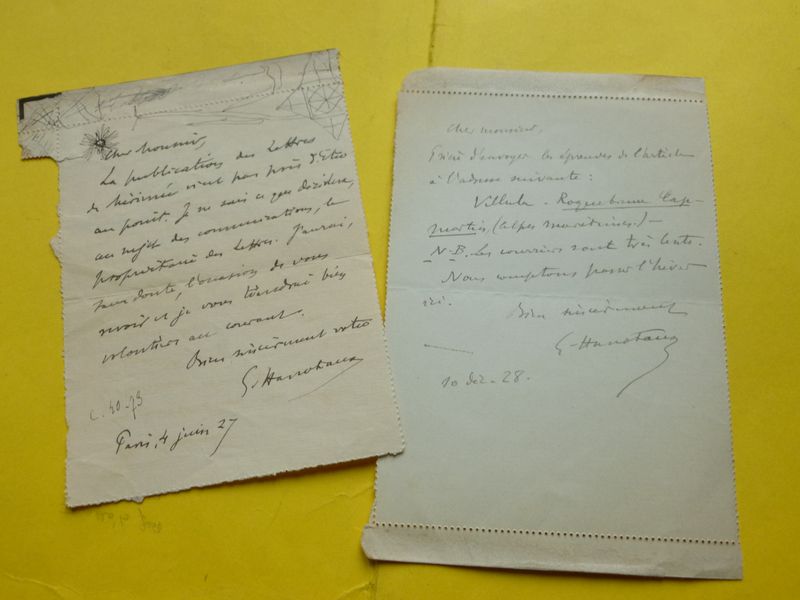 Cher Monsieur,
La publication des Lettres
de Mérimée n'est pas près d'être
au point. Je ne sais ce que décidera,
au sujet des communications, le
propriétaire des Lettres. J'aurai,
sans doute, l'occasion de vous
revoir et je vous tiendrai bien
volontiers au courant.
Bien sincèrement votre
G. Hanotaux
Paris, 4 juin 27
Cher monsieur,
Prière d'envoyer les épreuves de l'article
à l'adresse suivante :
Villula. Roquebrune Cap-
martin, (Alpes maritimes.) -
N-B. Les courriers sont très lents.
Nous comptons passer l'hiver
ici.
Bien sincèrement
G. Hanotaux
10 dec - 28.